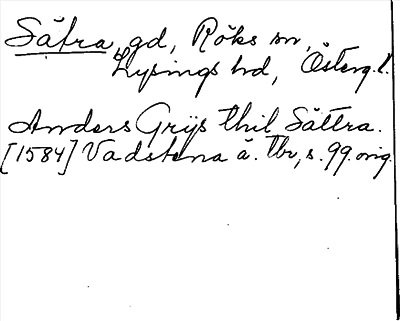 Sätra, gd, Röks sn,
Lysings hd, Österg.l.
Anders Grijs thil Sättra.
[1584] Vadstena ä. tbr, s. 99. orig.